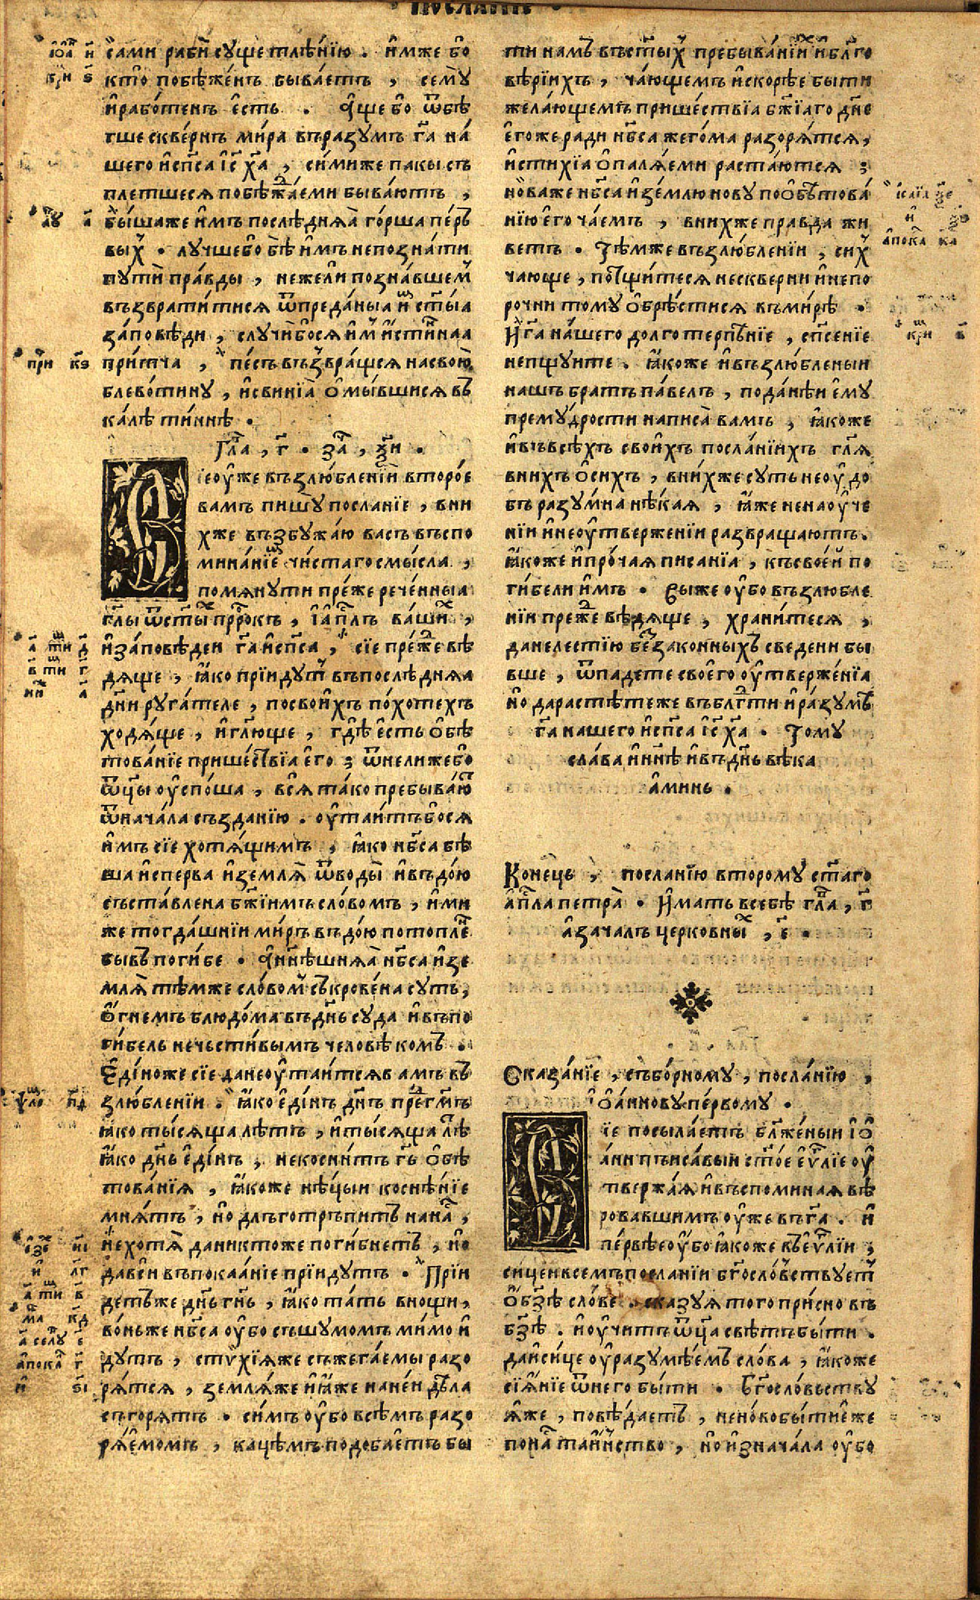 послание
сами раби суще тлѣнїю . имже бо
кто побѣженъ бываетъ , сему
и работенъ есть . Аще бо ѿбѣ
гше сквернъ мира въразумъ г҃а на
шего и сп҃са іс҃ х҃а , сими же пакы съ
плетшеся побѣжаеми бываютъ ,
быша же имъ послѣдняа горша перъ
вых . лучше бо бѣ имъ непознати
пути правды , нежели познавшем
възвратитися ѿ преданыа им ст҃ыа
заповѣди , случи бо ся им истиннаа
притча , песъ възвращся на свою
блевотину , и свинїа омывшися въ
калѣ тиннѣ .
Гла , г҃ . за , ѯ҃и .
Сїе уже възлюбленїи второе
вамъ пишу посланїе , в ни
хже възбужаю васъ въспо
минанїе чистаго смысла ,
помянути преже реченныа
гл҃ы ѿ ст҃ых пр҃ркъ , і ап҃лъ ваших ,
и заповѣдеи г҃а и сп҃са , сїе преже вѣ
дяще , яко прїидут въ послѣдняа
дн҃и ругателе , по своихъ похотехъ
ходяще , и гл҃юще , гдѣ есть обѣ
тованїе пришествїа его ; ѿнели же бо
ѿц҃ы успоша , вся тако пребываю
ѿ начала созданїю . утаитъ бо ся
имъ сїе хотящимъ , яко нб҃са бѣ
ша исперва и земля ѿ воды и въдою
съставлена бж҃їимъ словомъ , ими
же тогдашнїи миръ въдою потопле
бывъ погибе . А нн҃ѣшняа нб҃са и зе
мля тѣмже словом съкровена суть ,
огнемъ блюдома въ дн҃ь суда и въ по
гибель нечестивымъ человѣкомъ .
Едіноже сїе да не утаится вамъ въ
злюбленїи . яко едінъ дн҃ь пред г҃мъ
яко тысяща лѣтъ , и тысяща лѣ
яко дн҃ь едінъ , не коснитъ г҃ь обѣ
тованїя , якоже нѣцыи коснѣнїе
мнятъ , но длъготръпитъ на на ,
не хотя да никтоже погибнетъ , но
да вси въ покаанїе прїидутъ . Прїи
детъ же дн҃ь г҃нь , яко тать в нощи ,
воньже нб҃са убо съ шумомъ мимо и
дутъ , стѵхїя же съжегаемы разо
рятся , земля же и яже на ней дѣла
сгорятъ . симъ убо всѣмъ разо
ряемомъ , кацѣмъ подобаетъ бы
ти намъ въ ст҃ых пребыванїих и бл҃го
вѣрїихъ , чающемъ и скорѣе быти
желающемъ пришествїа бж҃їаго дн҃е
егоже ради нб҃са жегома разорятся ,
и стихїа опаляеми растаются ;
нова же нб҃са и землю нову по обѣтова
нїю его чаемъ , в нихже правда жи
ветъ . Тѣмже възлюбленїи , сих
чающе , потщитеся нескверни и непо
рочни тому обрѣстися въ мирѣ .
И г҃а нашего долготерпѣнїе , сп҃сенїе
непщуите . якоже и възлюбленыи
нашъ братъ павелъ , по данѣи ему
премудрости написа вамъ , якоже
и въ всѣхъ своихъ посланїихъ гл҃я
в нихъ о сихъ , в нихже суть неудо
бъ разумна нѣкая , яже ненауче
нїи и неутверженїи развращаютъ .
якоже и прочая писанїа , къ своей по
гибели имъ . Вы же убо възлюбле
нїи преже вѣдяще , хранитеся ,
да не лестїю беззаконныхъ сведени бы
вше , ѿпадете своего утверженїа
но да растѣте же въ бл҃гдти и разумѣ
г҃а нашего и сп҃са іс҃ х҃а . Тому
слава и нн҃ѣ и въ дн҃ь вѣка
аминь .
Конецъ , посланїю второму ст҃аго
ап҃ла петра . Имать в себѣ гл҃а , г҃
а зачалъ церковных , е҃ .
Сказанїе , съборному , посланїю ,
їоаннову первому .
Сїе посылаетъ бл҃женыи іо
анн пъисавыи ст҃ое еѵ҃лїе оу
твержая и въспоминая вѣ
ровавшимъ уже въ г҃а . и
первѣе убо якоже въ еѵ҃лїи ,
сице и всемъ посланїи бг҃ословствует
о бз҃ѣ словѣ . сказуя того присно въ
бз҃ѣ . и учитъ ѿц҃а свѣтъ быти .
да и сице уразумѣемъ слова , якоже
сїянїе ѿ него быти . Бг҃ословьству
я же , повѣдаетъ , не ново быти еже
по на таинство , но изначала убо